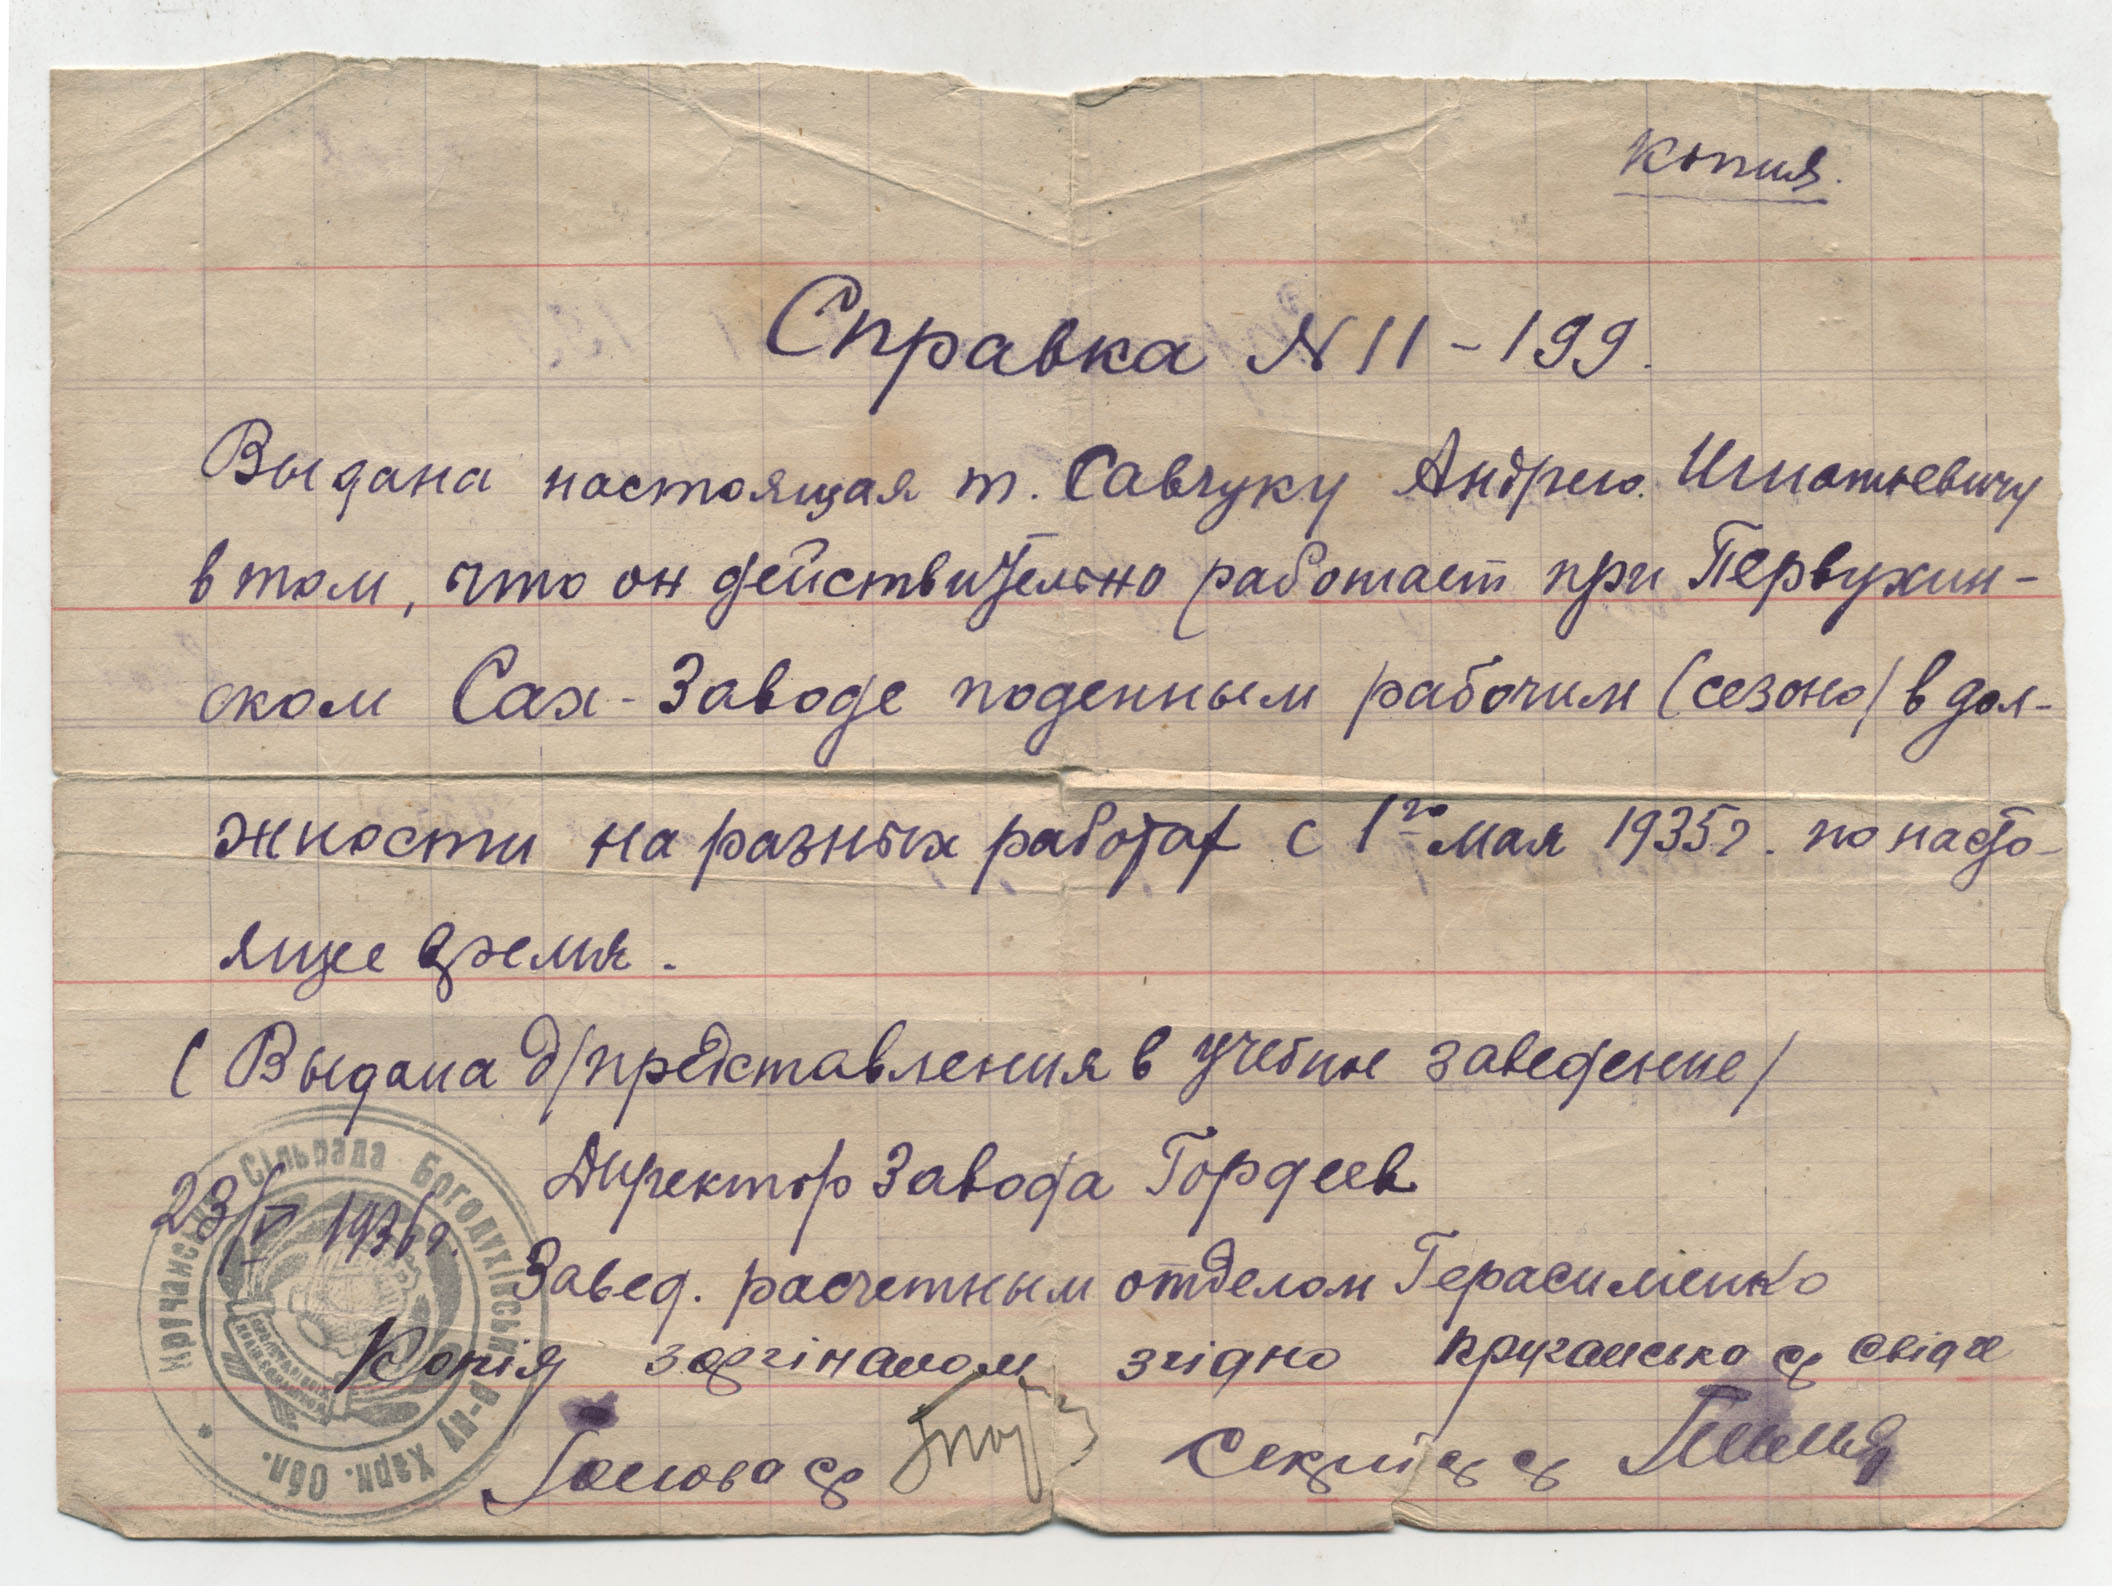 Копия.
Справка № 11-199.
Выдана настоящая т. Савчуку Андрею Игнатьевичу
в том, что он действительно работает при Первухин-
ском Сах-Заводе поденным рабочим (сезоно) в дол-
жности на разных работах с 1го мая 1935г. по насто-
ящее время.
(Выдана д/представления в учебное заведение)
Директор Завода Гордеев
23/V 1936г.
Завед. расчетным отделом Герасименко
Копія з оргіналом згідно Кручансько с/р свідче
Голова с/р
Секрит с/р
Кручанська Сільрада Богодухівськ. р-ну Харк. Обл.